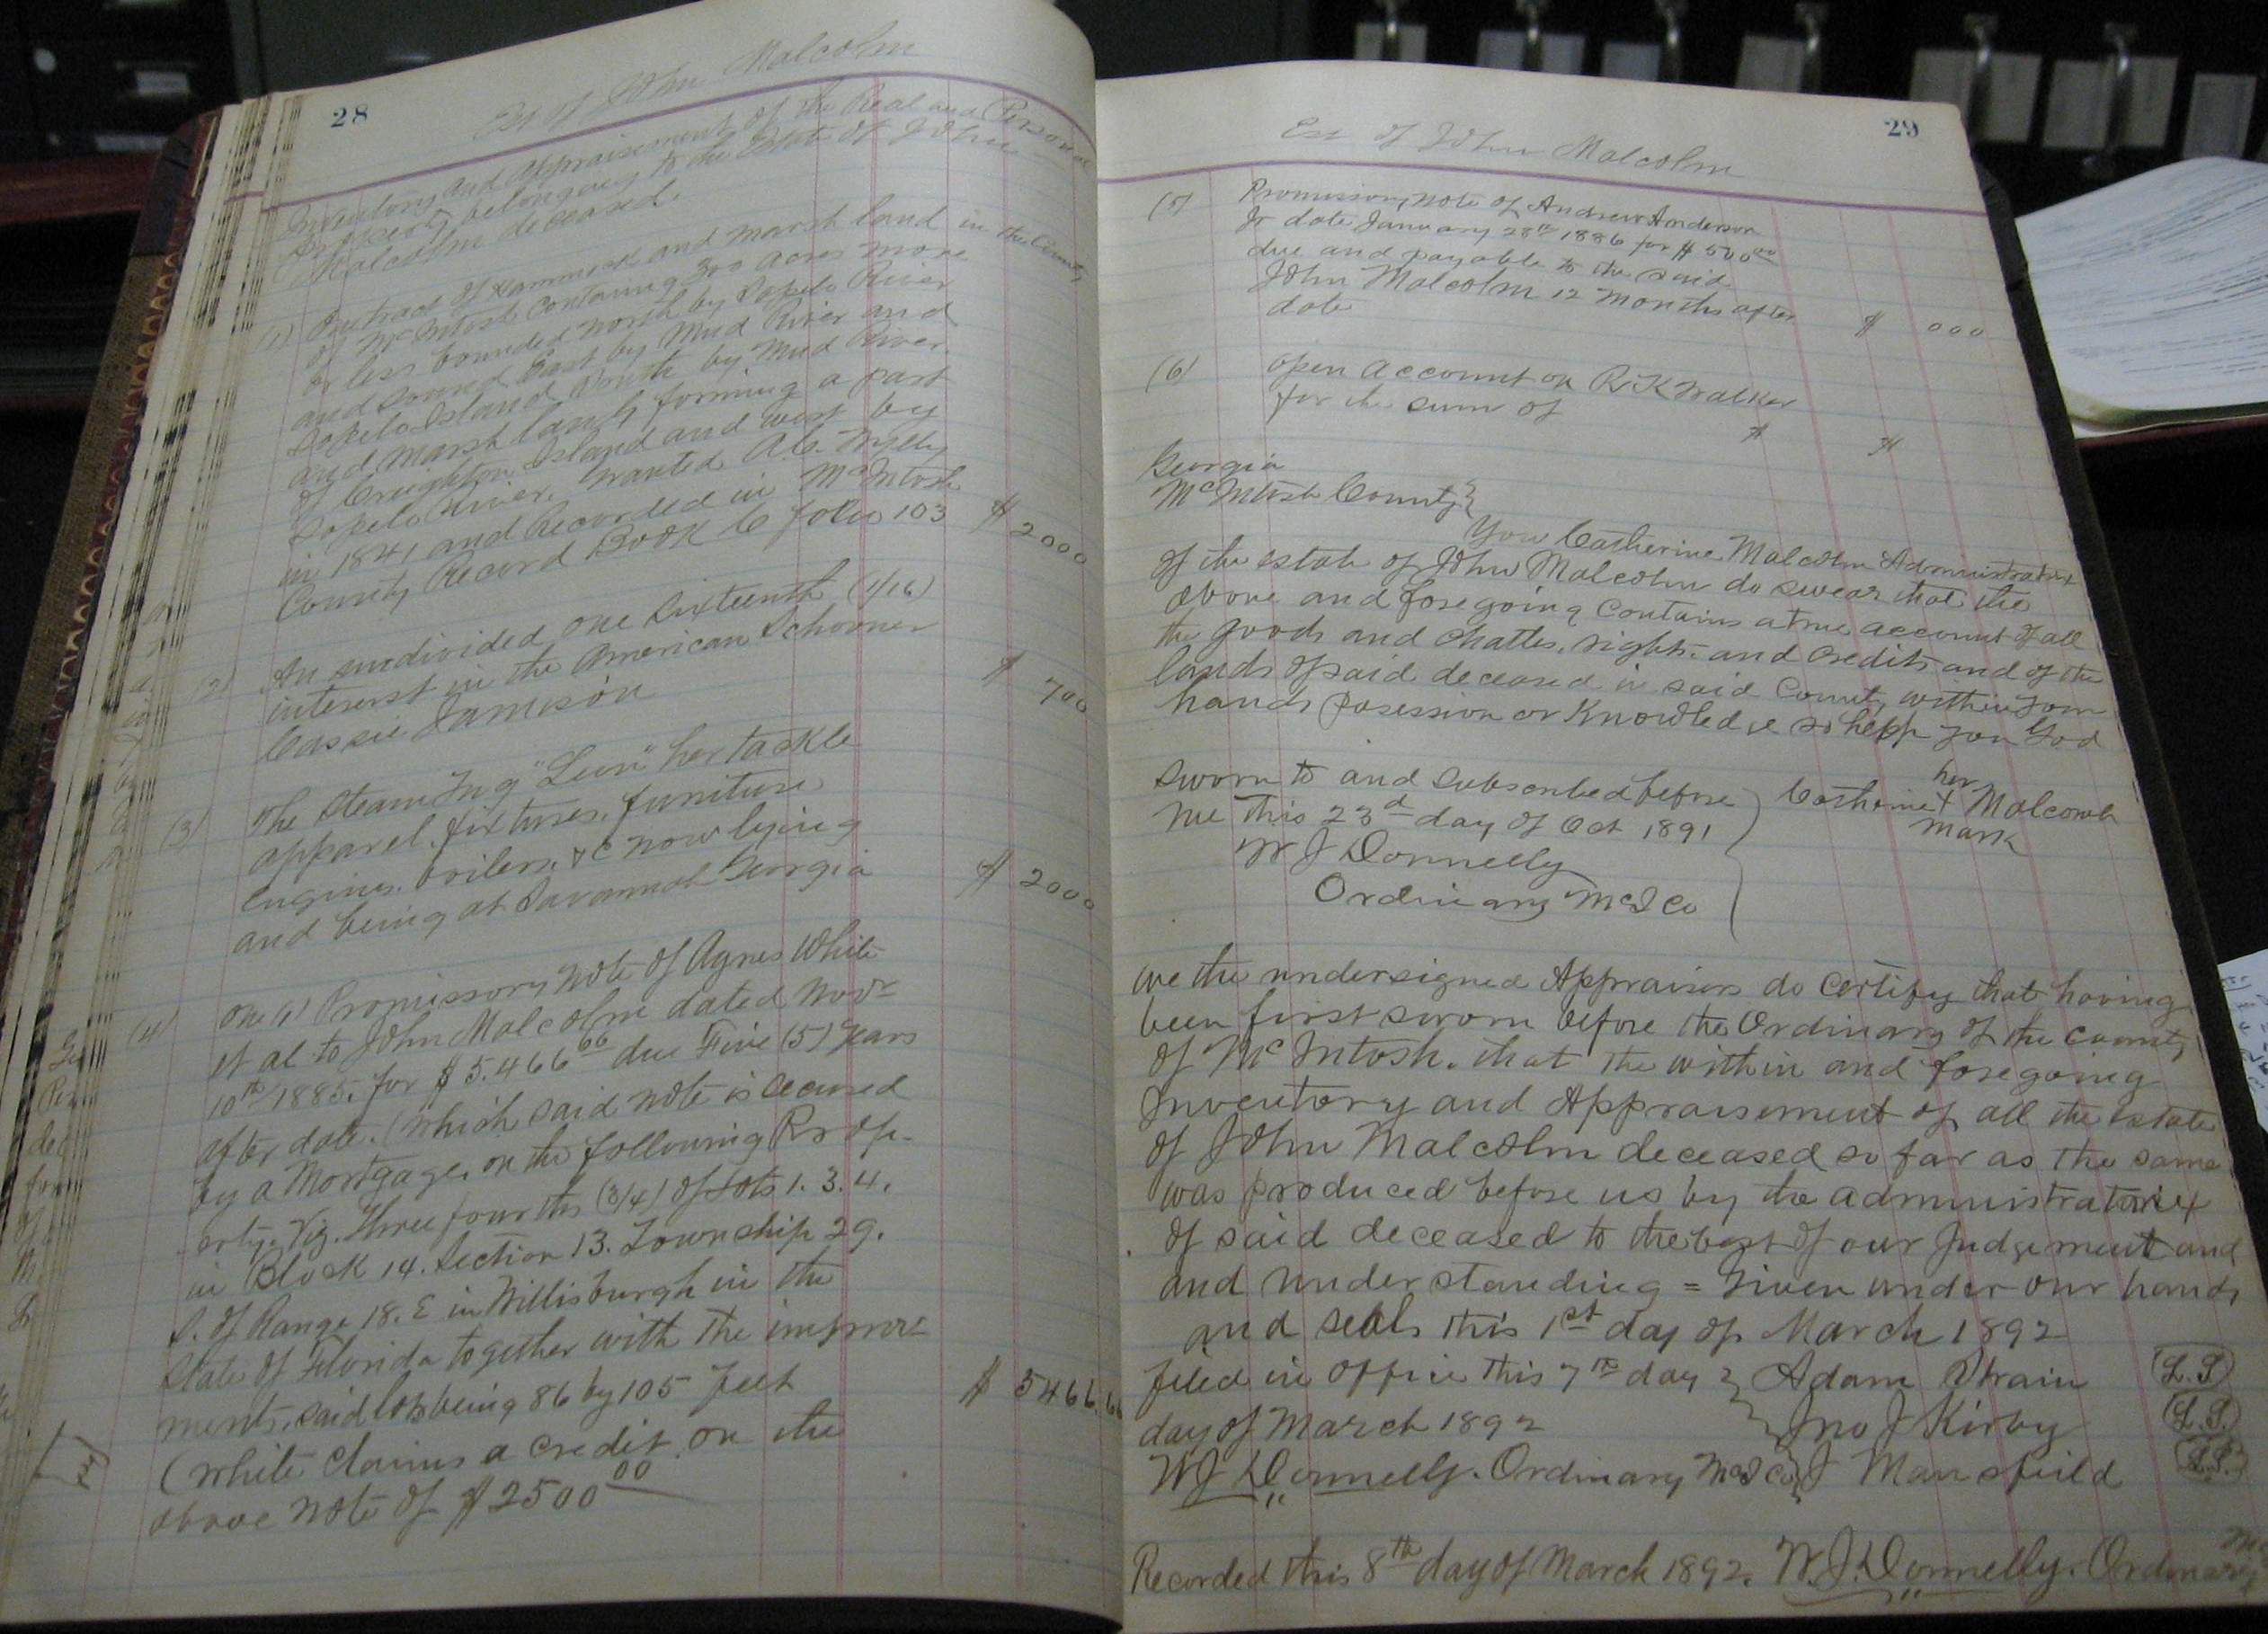 28
Est of John Malcolm
Inventory and appraisement of the Real and Personal
Property belonging to the Estate of John
Malcolm deceased.
(1) One tract of Hammock and marsh land in the County
of McIntosh containing 300 acres more
or less bounded North by Sapelo River
and Sound East by Mud River and
Sapelo Island South by Mud River
and marsh lands forming a part
of Creighton Island and west by
Sapelo River. Granted A.C. Wylly
in 1841 and Recorded in McIntosh
County Record Book C folio 103 $ 2000
(2) An undivided one sixteenth (1/16)
interest in the American Schooner
Cassie Jamison $ 700
(3) The Steam Tug "Leon" her tackle
apparel, fixtures, furniture
engines. boilers. &c now lying
and being at Savannah Georgia $ 2000
(4) One (1) Promissory note of Agnes White
et al to John Malcolm dated Novr
10th 1885. for $5.466 66 due Five (5) years
after date. (which said note is secured
by a Mortgage, on the following Prop-
erty. Viz. Three fourths (3/4) of Lots 1. 3. 4.
in Block 14. Section 13. Township 29.
S. of Range 18. E in Willisburgh in the
State of Florida together with the improve
ments. said lots being 86 by 105 feet $ 5466.66
(White claims a credit on the
above note of $2500 00
29
Est of John Malcolm
(5) Promissory note of Andrew Anderson
Jr date January 28th 1886 for $500 00
due and payable to the said
John Malcolm 12 months after
date $ 000
(6) Open account on R K Walker
for the sum of
$ $
Georgia
McIntosh County }
You Catherine Malcolm Administratrix
of the estate of John Malcolm do swear that the
above and foregoing contains a true account of all
the goods and chattles, rights and credits and of the
lands of said deceased in said County within your
hands posession or Knowledge so help you God
Sworn to and subscribed before
me this 23d day of Oct 1891
W J Donnelly
Ordinary McI Co
her
Catherine X Malcomb
mark
We the undersigned Appraisers do certify that having
been first sworn before the Ordinary of the county
of McIntosh. that the within and foregoing
Inventory and Appraisement of all the Estate
of John Malcolm deceased so far as the same
was produced before us by the administratorix
of said deceased to the best of our Judgement and
and understanding = Given under our hands
and seals this 1st day of March 1892
Filed in office this 7th day } Adam Strain (L.S)
day of March 1892 } Jno J Kirby (L.S.)
W J Donnelly. Ordinary McI Co } J Mansfield (L.S.)
Recorded this 8th day of March 1892. W.J. Donnelly. Ordinary